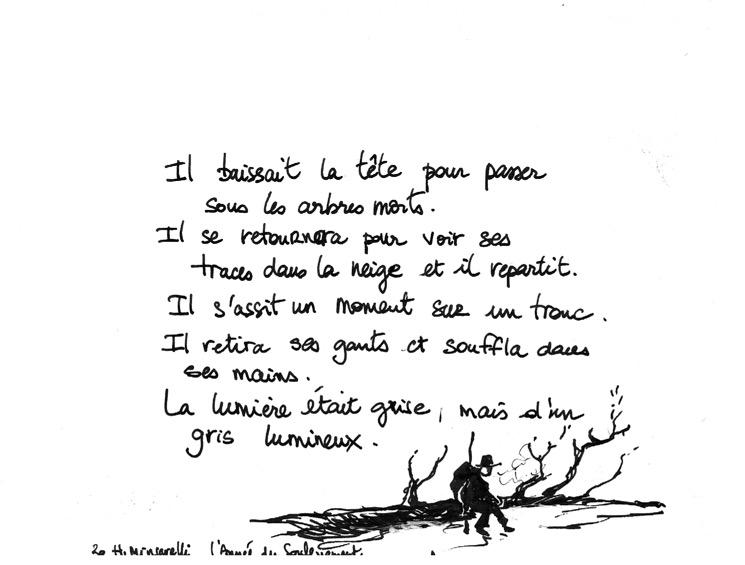 Il baissait la tête pour passer
sous les arbres morts.
Il se retournera pour voir ses
traces dans la neige et il repartit.
Il s'assit un moment sur un tronc.
Il retira ses gants et souffla dans
ses mains.
La lumière était grise, mais d'un
gris lumineux.
20 H. l'Année du Soulèvement.